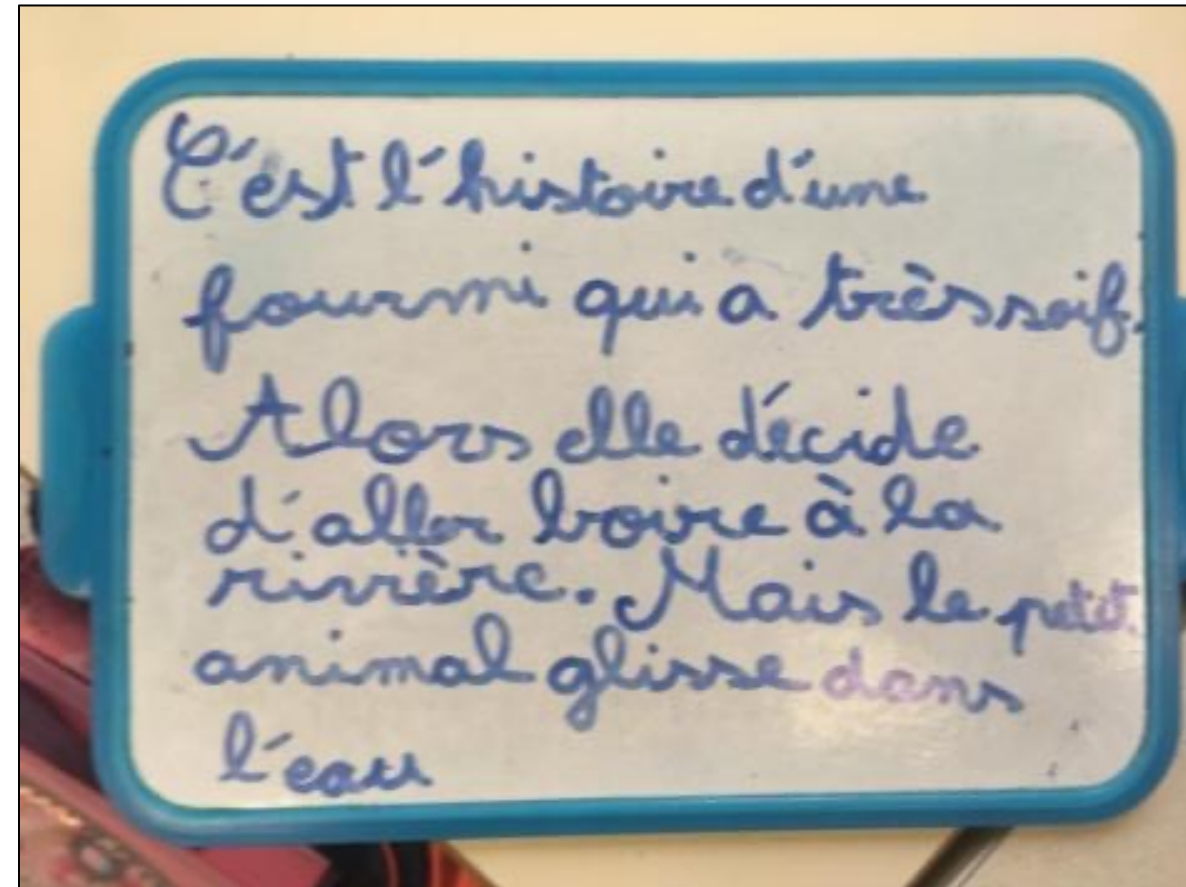 C'est l'histoire d'une
fourmi qui a très soif.
Alors elle décide
d'aller boire à la
rivière. Mais le petit
animal glisse dans
l'eau